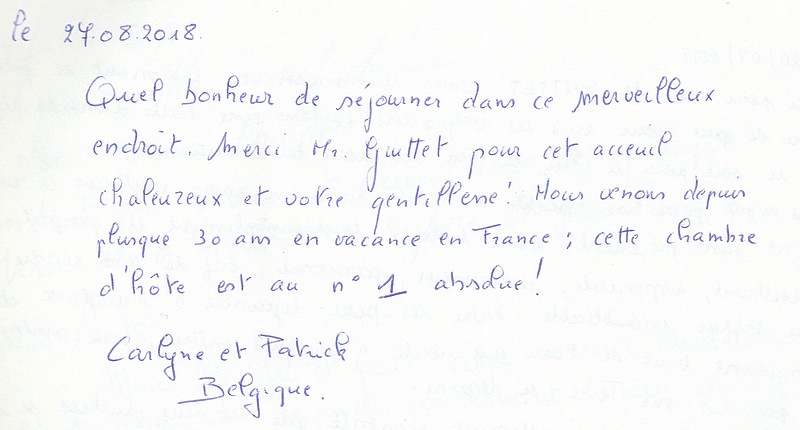 Le 27.08.2018.
Quel bonheur de séjourner dans ce merveilleux
endroit. Merci Mr. Guittet pour cet acceuil
chaleureux et votre gentillesse! Nous venons depuis
plusque 30 ans en vacance en France; cette chambre
d'hôte est au n° 1 absolue!
Carlyne et Patrick
Belgique.